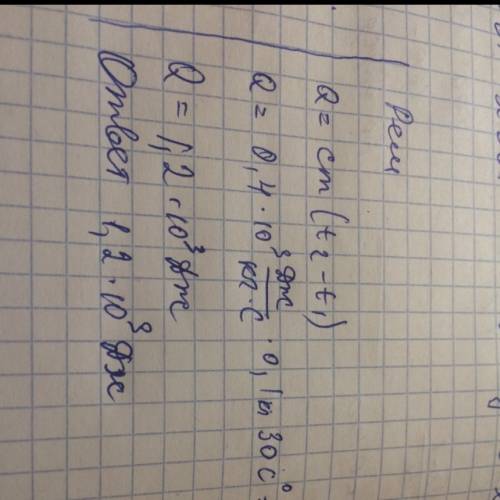 Реш
Q = cm (t₂ - t₁)
Q = 0,4 · 10³ Дж/кг·С · 0,1 кг 30 С° =
Q = 1,2 · 10³ Дж
Ответ 1,2 · 10³ Дж